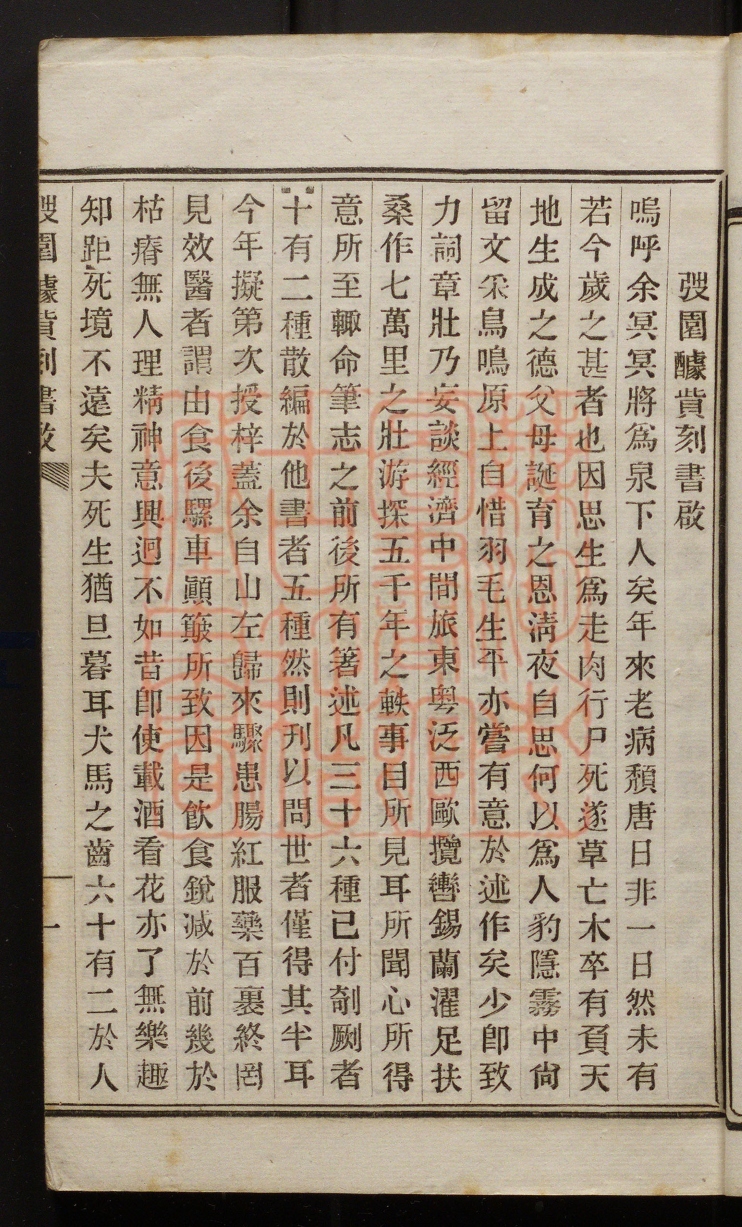 弢園醵貲刻書啟
嗚呼余冥冥將爲泉下人矣年來老病頹唐日非一日然未有
若今歲之甚者也因思生爲走肉行尸死遂草亡木卒有負天
地生成之德父母誕育之恩淸夜自思何以爲人豹隱霧中尙
留文采鳥鳴原上自惜羽毛生平亦嘗有意於述作矣少卽致
力詞章壯乃妄談經濟中間旅東粤泛西歐攬轡錫蘭濯足扶
桑作七萬里之壯游探五千年之軼事目所見耳所聞心所得
意所至輙命筆志之前後所有箸述凡三十六種已付剞劂者
十有二種散編於他書者五種然則刊以問世者僅得其半耳
今年擬第次授梓蓋余自山左歸來驟患腸紅服藥百裹終罔
見效醫者謂由食後騾車顚簸所致因是飮食銳減於前幾於
枯瘠無人理精神意興迥不如昔卽使載酒看花亦了無樂趣
知距死境不遠矣夫死生猶旦暮耳犬馬之齒六十有二於人
弢園醵貲刻書啟
一